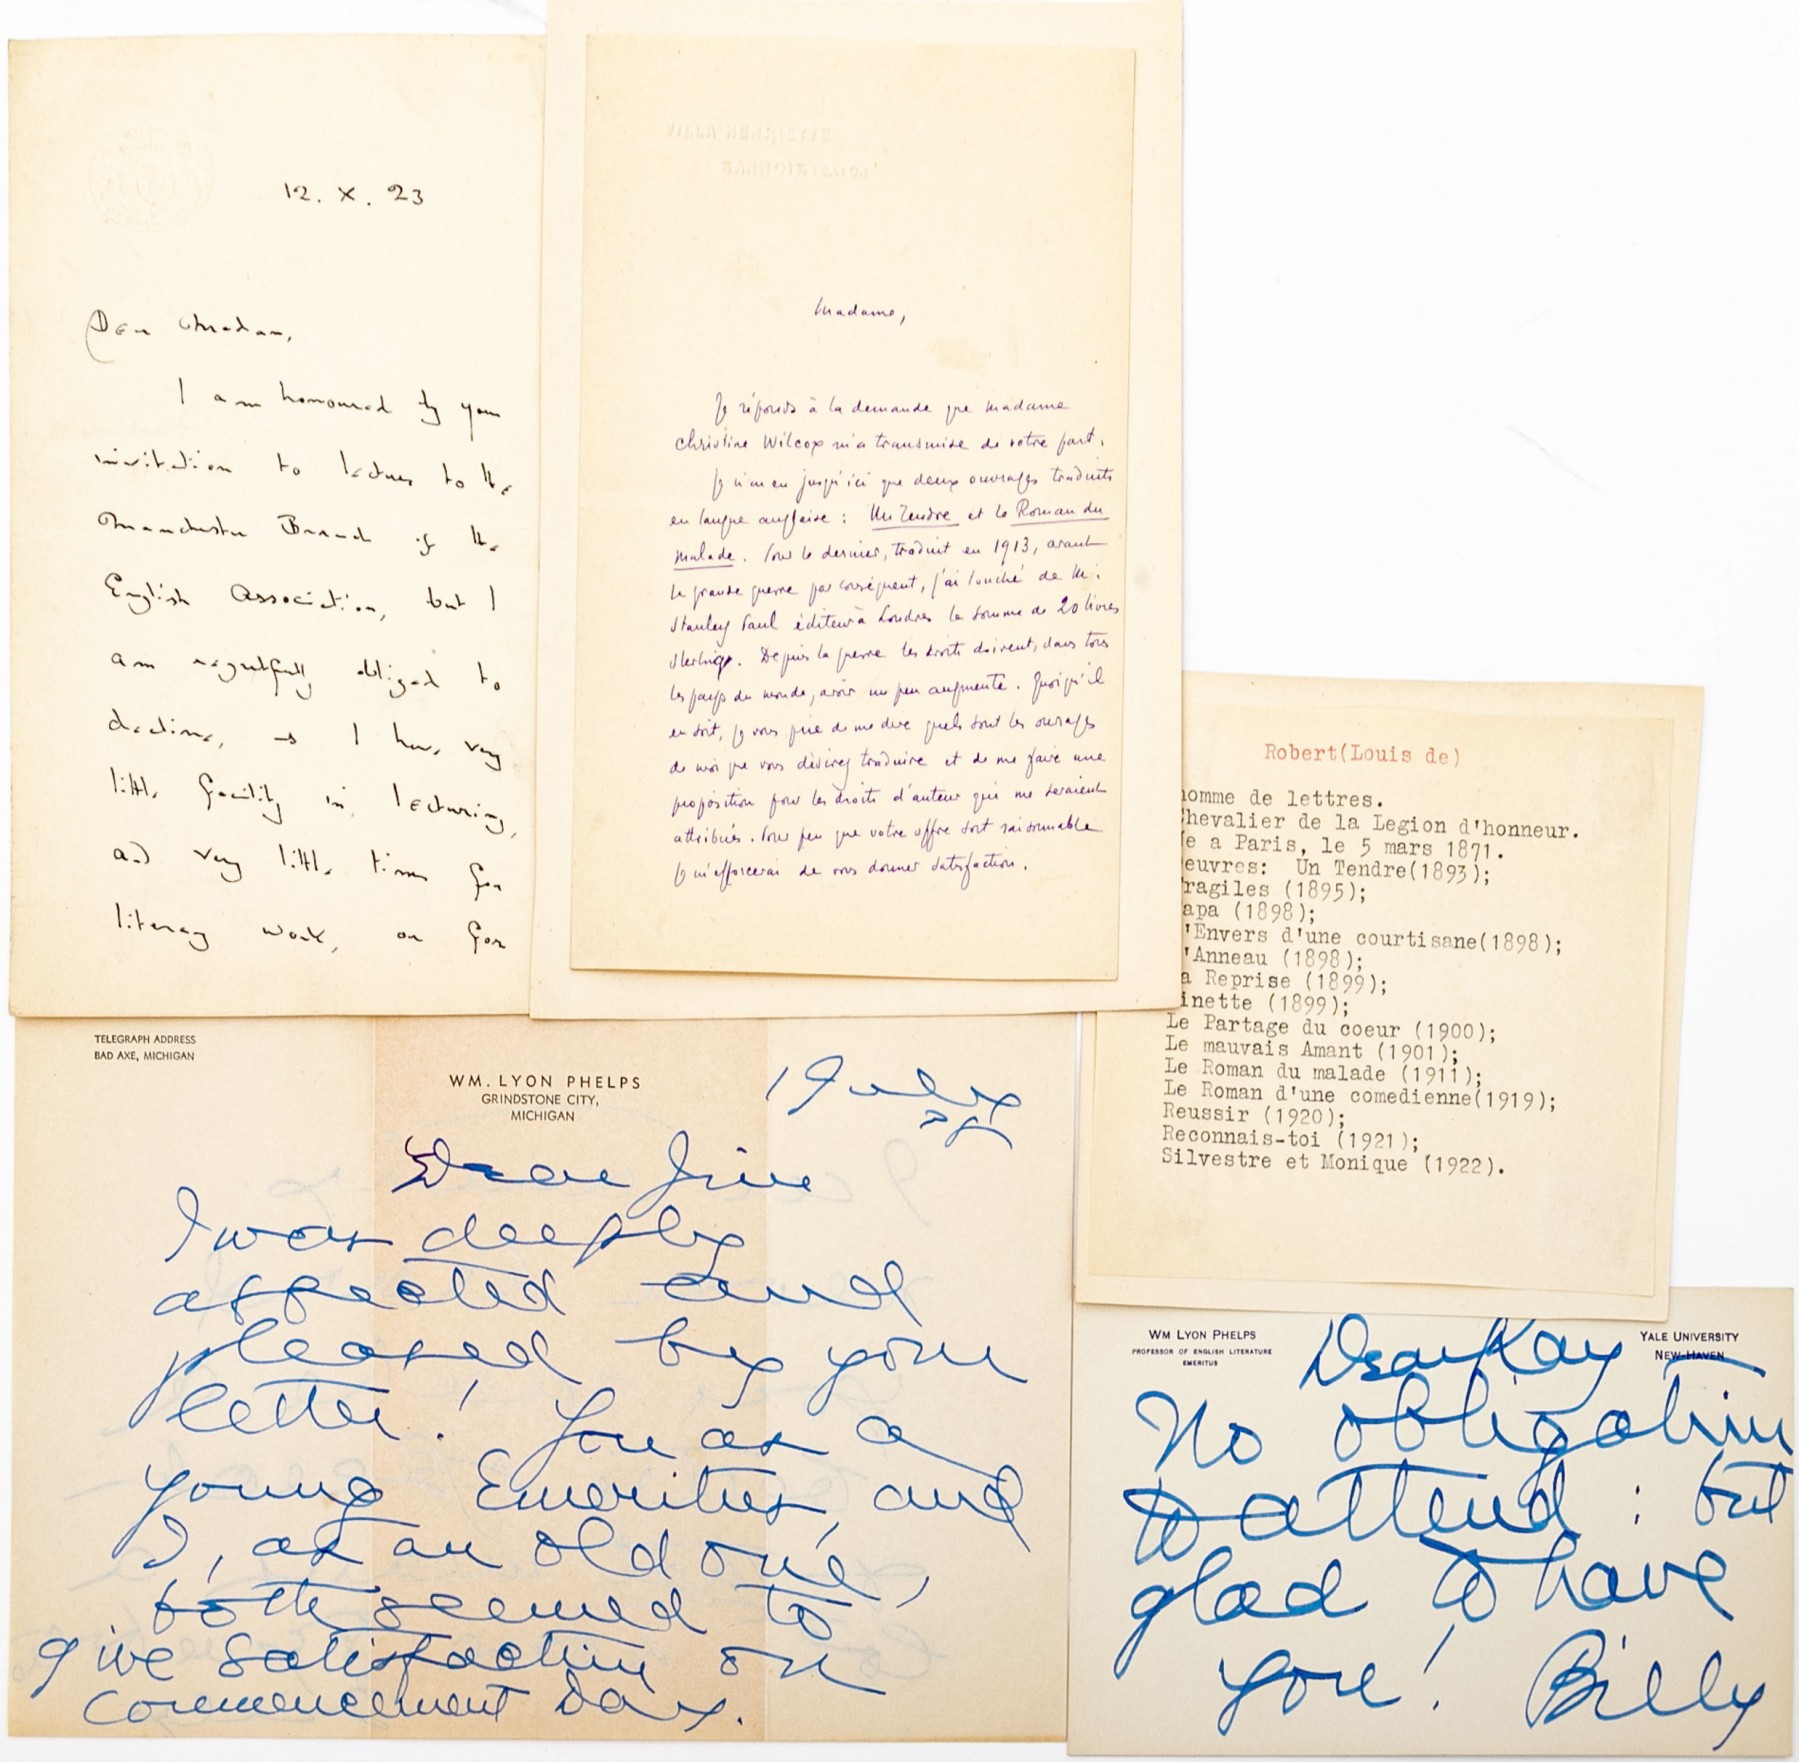 12. X. 23
Dear Madam,
I am honoured by your
invitation to lecture to the
Manchester Branch of the
English Association, but I
am regretfully obliged to
decline, as I have very
little facility in lecturing,
and very little time for
literary work, or for
VILLA HENRIETTE
Madame,
Je réponds à la demande que madame
Christine Wilcox m'a transmise de votre part.
Je n'ai eu jusqu'ici que deux ouvrages traduits
en langue anglaise : Un Tendre et le Roman du
malade. Pour le dernier, traduit en 1913, avant
la grande guerre par conséquent, j'ai touché de M.
Stanley Paul éditeur à Londres la somme de 20 livres
sterlings. Depuis la guerre les droits doivent, dans tous
les pays du monde, avoir un peu augmenté. Quoiqu'il
en soit, je vous prie de me dire quels sont les ouvrages
de moi que vous désirez traduire et de me faire une
proposition pour les droits d'auteur qui me seraient
attribués. Pour peu que votre offre soit raisonnable
je m'efforcerai de vous donner satisfaction.
Robert(Louis de)
homme de lettres.
Chevalier de la Legion d'honneur.
Ne a Paris, le 5 mars 1871.
euvres: Un Tendre(1893);
ragiles (1895);
apa (1898);
'Envers d'une courtisane(1898);
'Anneau (1898);
a Reprise (1899);
inette (1899);
Le Partage du coeur (1900);
Le mauvais Amant (1901);
Le Roman du malade (1911);
Le Roman d'une comedienne(1919);
Reussir (1920);
Reconnais-toi (1921);
Silvestre et Monique (1922).
TELEGRAPH ADDRESS
BAD AXE, MICHIGAN
WM. LYON PHELPS
GRINDSTONE CITY,
MICHIGAN
1 July
Dear Jim
I was deeply
affected and
pleased by your
letter! You as a
young Emeritus, and
I, as an old one,
both seemed to
give satisfaction on
Commencement Day.
WM LYON PHELPS
PROFESSOR OF ENGLISH LITERATURE
EMERITUS
YALE UNIVERSITY
NEW HAVEN
Dear Kay
No obligation
to attend : but
glad to have
you! Billy